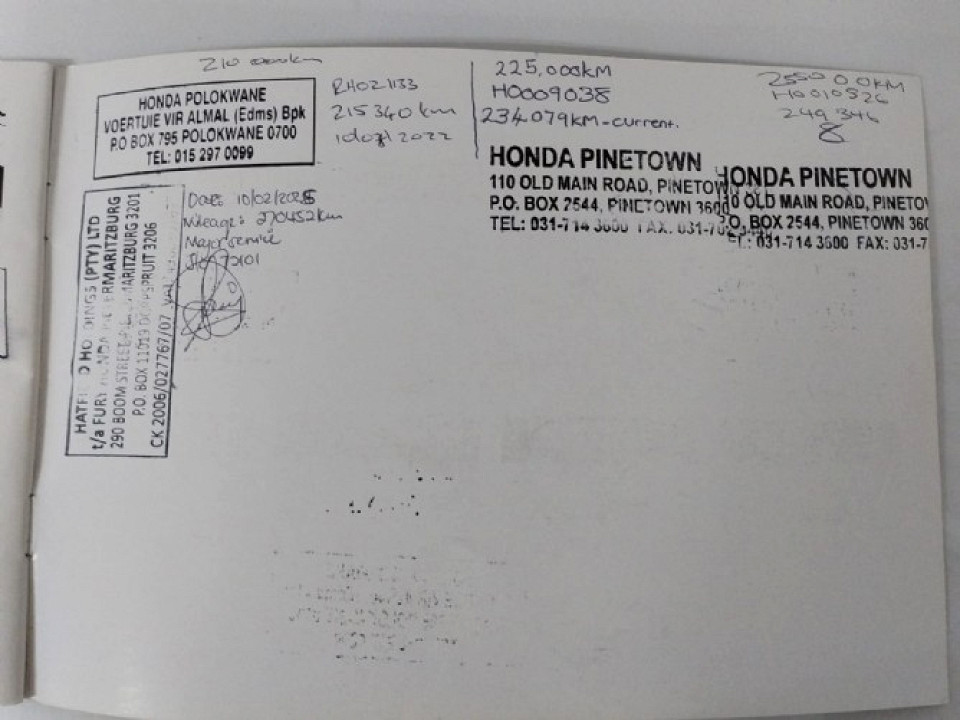 210 000km
HONDA POLOKWANE
VOERTUIE VIR ALMAL (Edms) Bpk
P.O BOX 795 POLOKWANE 0700
TEL: 015 297 0099
RH021133
215340 km
225,000KM
H0009038
234079KM-current.
HONDA PINETOWN
110 OLD MAIN ROAD, PINETOW
P.O. BOX 2544, PINETOWN 360
TEL: 031-714 3600 FAX: 031-7
255000KM
H0010526
249346
HONDA PINETOWN
OLD MAIN ROAD, PINETOW
O. BOX 2544, PINETOWN 360
031-714 3600 FAX: 031-7
HO INGS (PTY) LTD
t/a FURY HONDA
290 BOOM STREET MARITZBURG 3201
P.O. BOX 11019 3206
CK 2006/027767/07
Date: 10/02/2025
Mileage: 270452km
Major service
72101